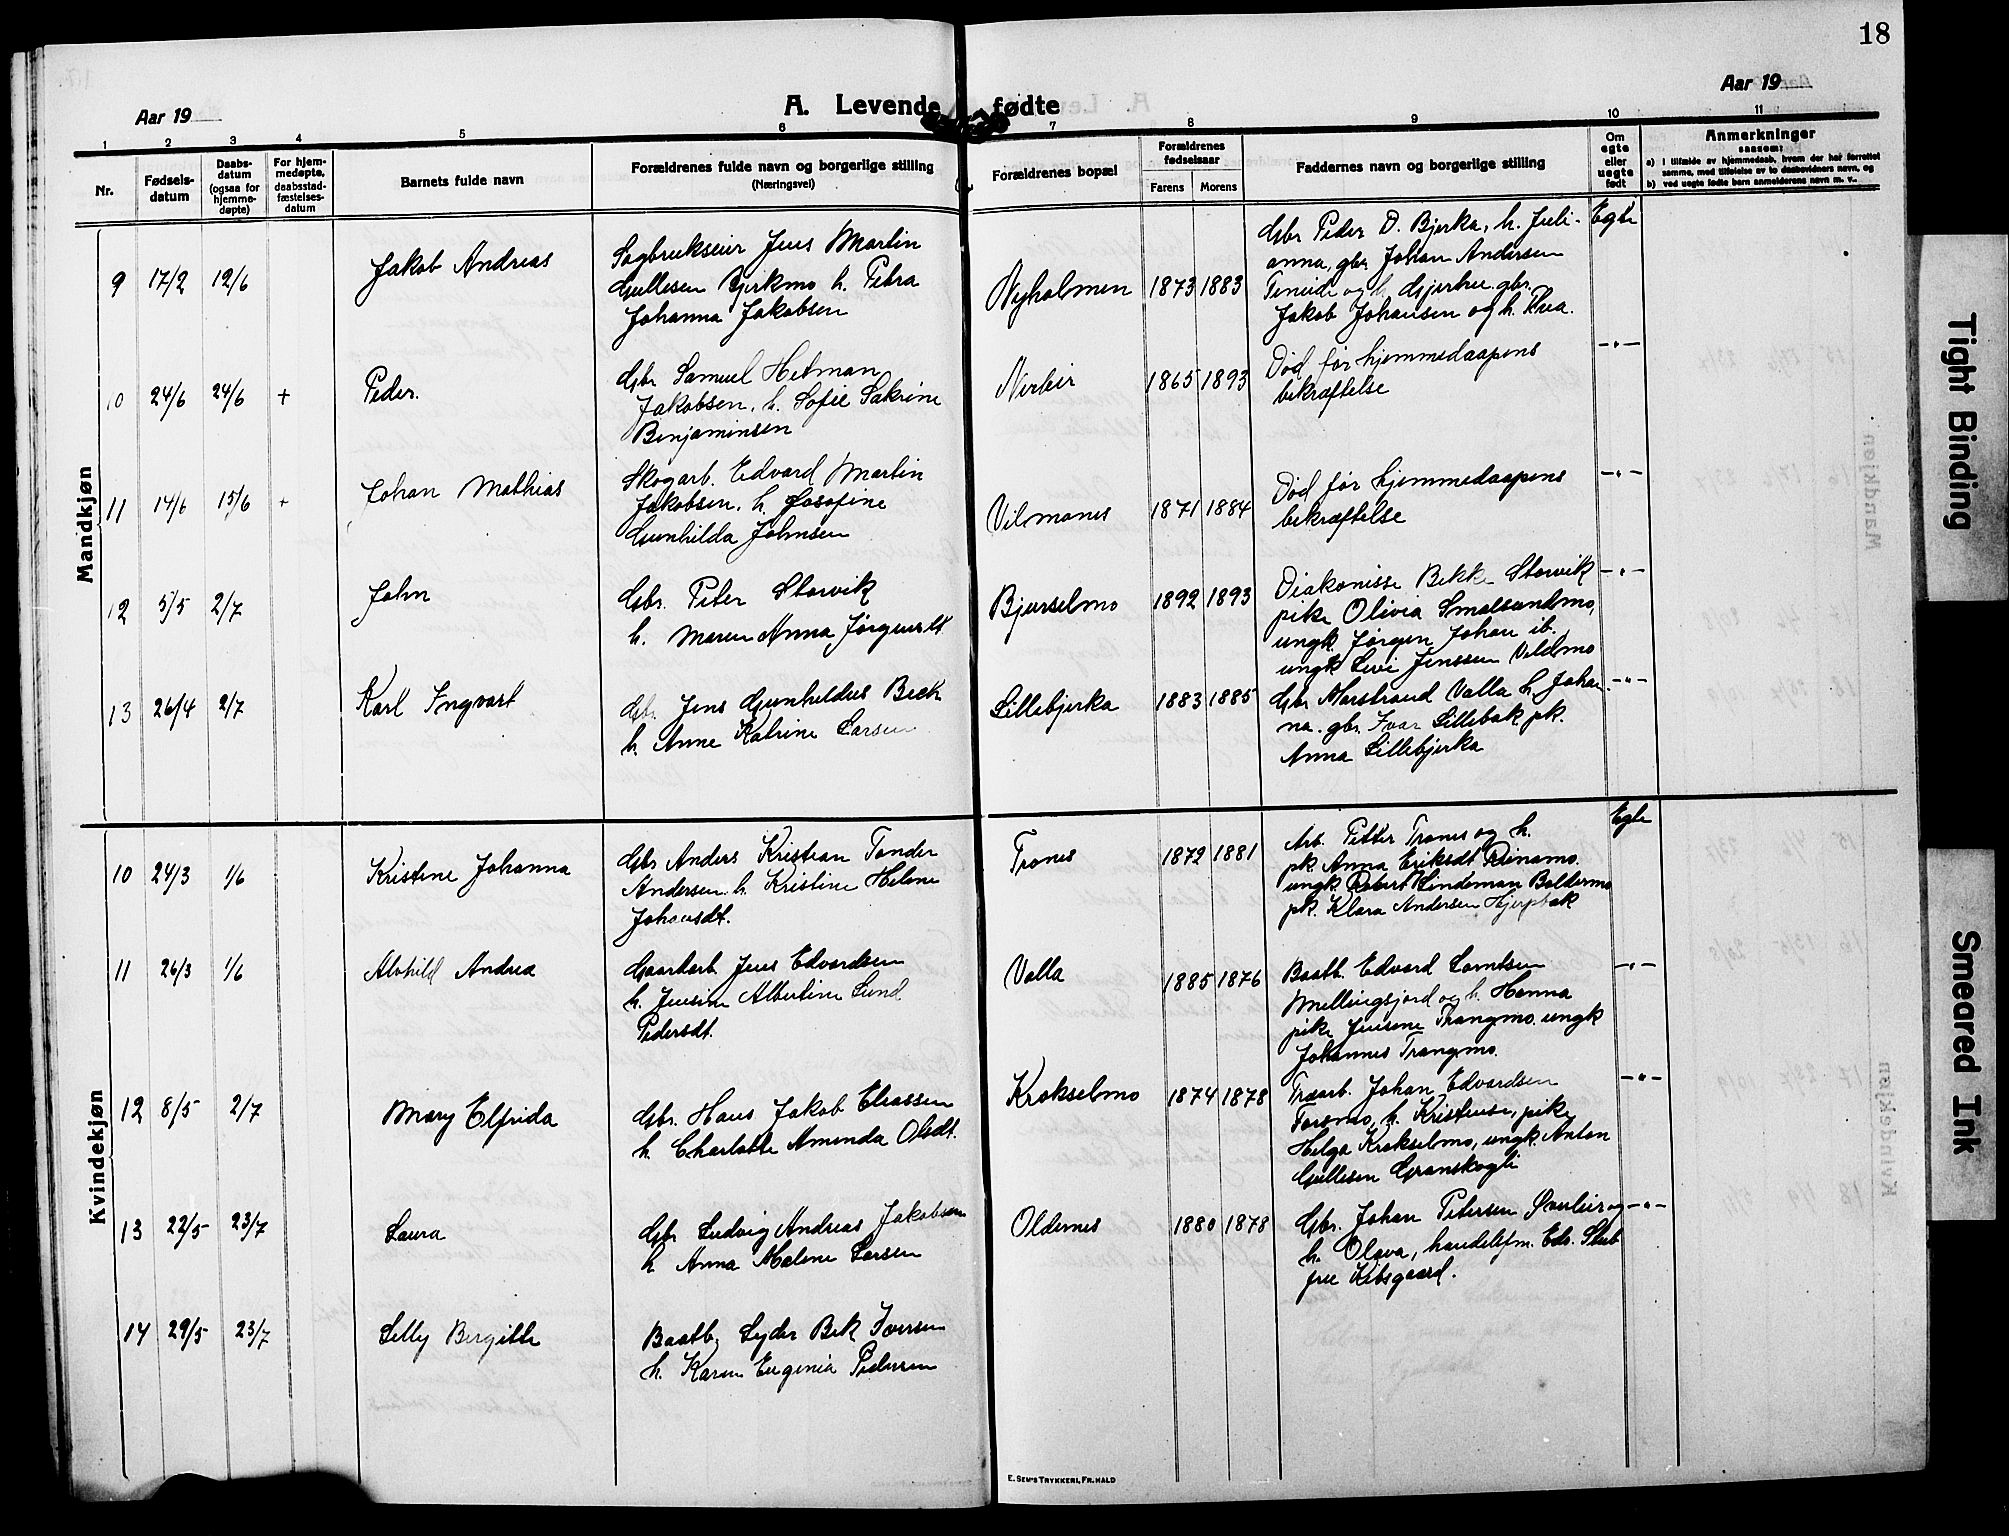 18
Aar 19
A. Levende fødte
Aar 19
1 2 3 4 5 6 7 8 9 10 11
Nr.
Fødsels-
datum
Daabs-
datum
(ogsaa for
hjemme-
døpte)
For hjem-
medøpte,
daabsstad-
fæstelses-
datum
Barnets fulde navn
Forældrenes fulde navn og borgerlige stilling
(Næringsvei)
Forældrenes bopæl
Forældrenes
fødselsaar
Farens Morens
Faddernes navn og borgerlige stilling
Om
egte
eller
uegte
født
Anmerkninger
saasom:
a) i tilfælde av hjemmedaab, hvem der har forrettet
samme, med tilføielse av to daabsvidners navn, og
b) ved uegte fødte barn anmelderens navn m. v..
Mandkjøn
9 17/2 12/6 Jakob Andreas
Sagbrukseier Jens Martin
Gullesen Bjerkmo h. Petra
Johanna Jakobsen
Nyholmen 1873 1883
Gbr Peder D. Bjerka, h. Juli-
anna, gbr Johan Andersen
og h. gbr.
Jakob Johansen og h. Thea.
Egte
10 24/6 24/6 + Peder.
Gbr Samuel Hetman
Jakobsen, h. Sofie Sakrine
Benjaminsen
Nerleir 1865 1893
Død før hjemmedaapens
bekræftelse
-"-
11 14/6 15/6 + Johan Mathias
Skogarb. Edvard Martin
Jakobsen, h. Josofine
Gunhilda Johnsen
Vilmones 1871 1884
Død før hjemmedaapens
bekræftelse
-"-
12 5/5 2/7 John
Gbr. Peter Storvik
h. Maren Anna Jørgensdt
Bjurselmo 1892 1893
Diakonisse Bekke Storvik
pike Olivia Smalsundmo,
ungk Jørgen Johan ib.
ungk Levi Jenssen Vildmo
-"-
13 26/4 2/7 Karl Ingvart
Gbr. Jens Gunhildus Beck
h. Anne Katrine Larsen
Lillebjerka 1883 1885
Gbr Marstrand Valla h. Johan-
na. gbr. Ivar Lillebak pk.
Anna Lillebjerka
-"-
Kvindekjøn
10 24/3 1/6 Kristine Johanna
Gbr Anders Kristian Tander
Andersen h. Kristine Helene
Johansdt.
Trones 1872 1881
Arb. Petter Trones og h.
pk Anna Eriksdt Reinamo.
ungk Robert Lindeman Baldermo
pk. Klara Andersen Hjerpbak
Egte
11 26/3 1/6 Alvhild Andrea
Gaardarb Jens Edvardsen
h. Jensine Albertine Lund
Pedersdt.
Valla 1885 1876
Baatb. Edvard Lorntsen
Mellingsjord og h. Hanna
pike Jensine Trangmo. ungk
Johannes Trangmo.
-"-
12 8/5 2/7 Mary Elfrida
Gbr. Hans Jakob Eliassen
h. Charlotte Amanda Olsdt.
Krokselmo 1874 1878
Træarb. Johan Edvardsen
Toresmo, h. Kristense, pike
Helga Krokselmo, ungk. Anton
Gullesen Granskogli
-"-
13 22/5 23/7 Laura
Gbr Ludvig Andreas Jakobsen
h Anna Malene Larsen
Oldernes 1880 1878
Gbr. Johan Petersen Øvrleir og
h. Olava, handelsfm. Edv. Stub
frue Kibsgaard.
-"-
14 29/5 23/7 Lelly Bergitte
Baatb. Lyder Bek Iversen
h. Karen Eugenia Pedersen
E. SEM'S TRYKKERI, FR.HALD
Tight Binding
Smeared Ink